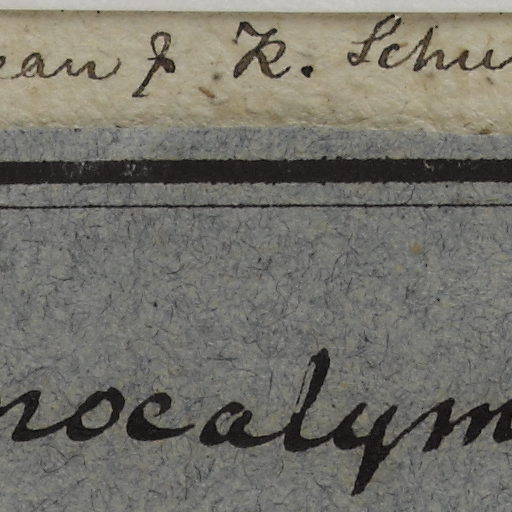 ean f K. Schu
nocalym